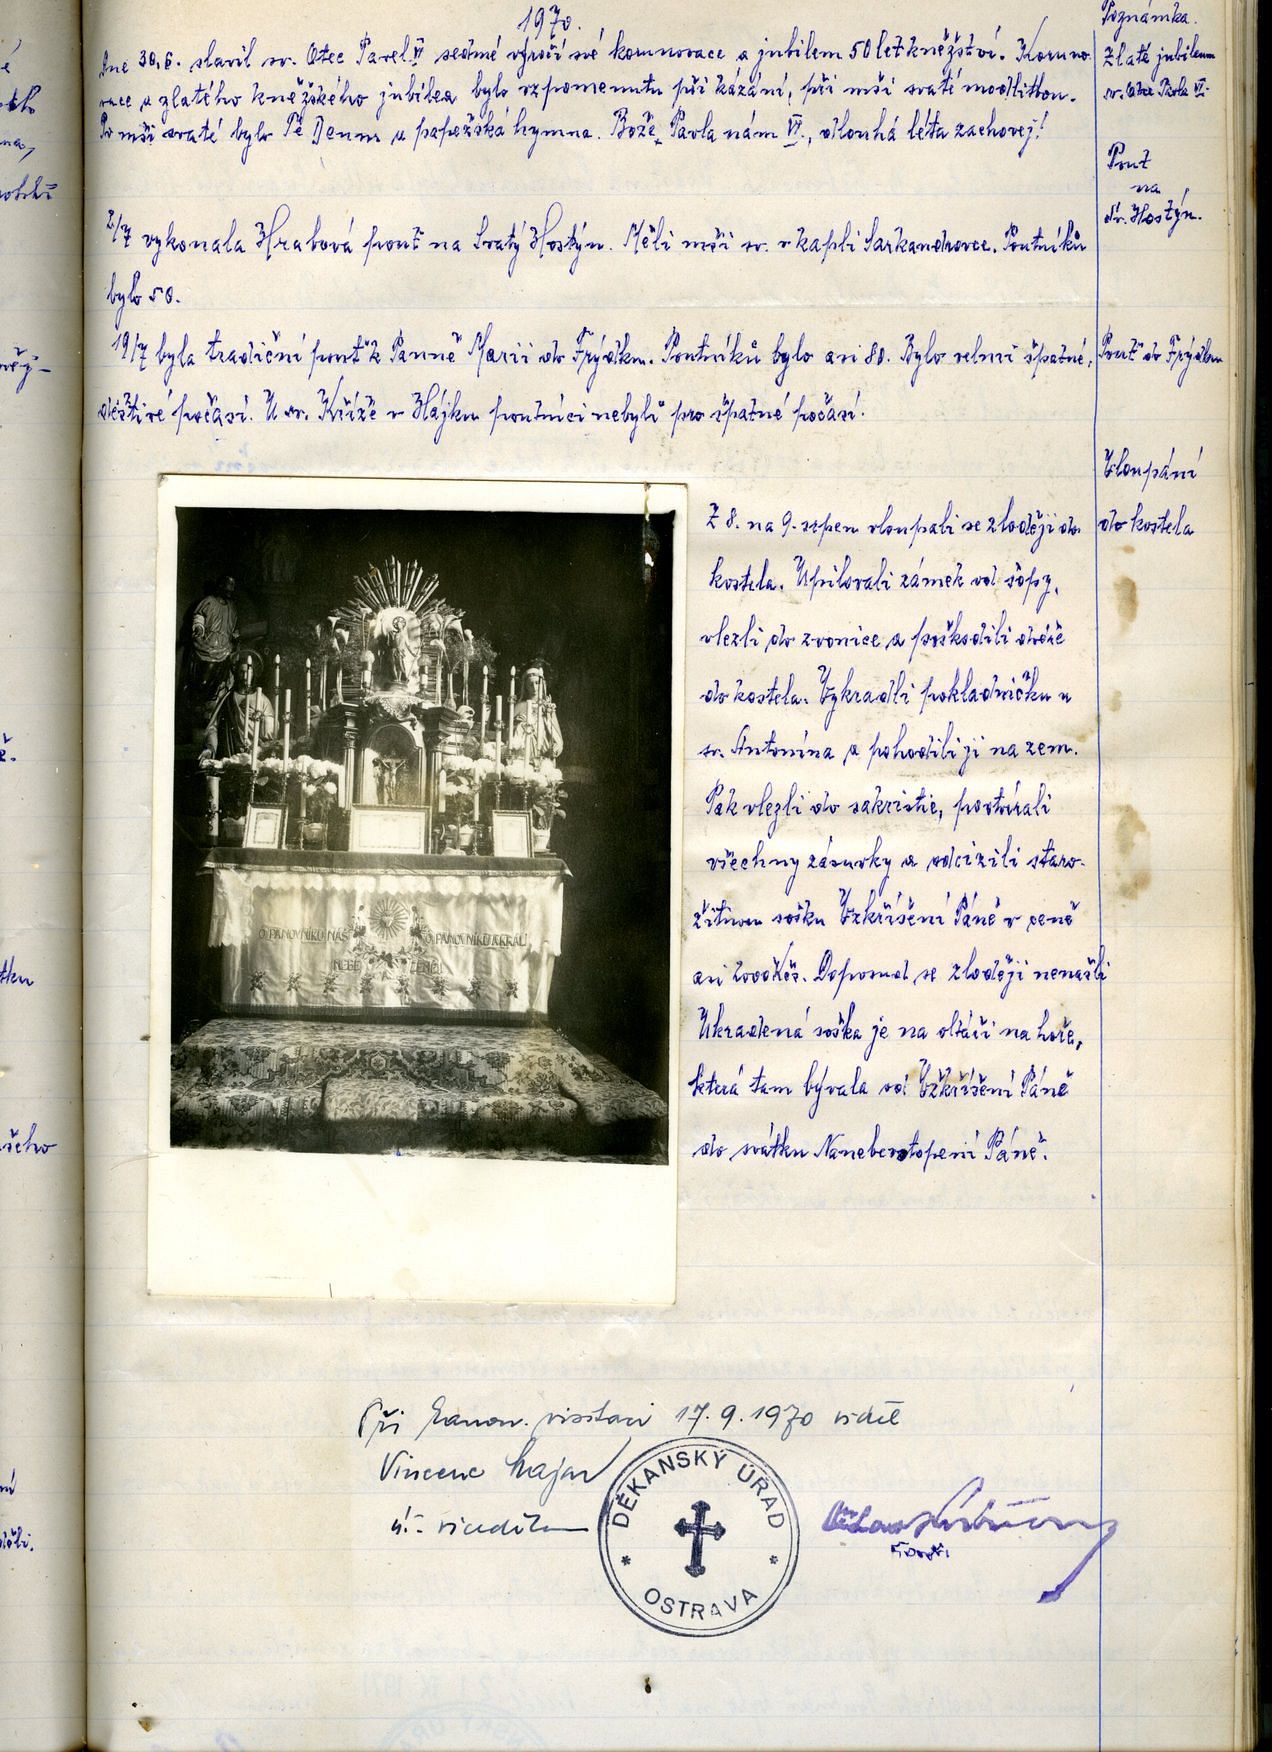 1970.
Poznámka.
Dne 30.6. slavil sv. Otec Pavel VI sedmé výročí své korunovace a jubileum 50 let kněžství. Koruno-
vace a zlatého kněžského jubilea bylo vzpomenuto při kázání, při mši svaté modlitbou.
Po mši svaté bylo Te Deum a papežská hymna. Bože, Pavla nám VI., dlouhá léta zachovej!
Zlaté jubileum
sv. Otce Pavla VI.
Pouť
na
Sv. Hostýn.
2/7 vykonala Hrabová pouť na Svatý Hostýn. Měli mši sv. v kapli Sarkandrovce. Poutníků
bylo 50.
19/7 byla tradiční pouť k Panně Marii do Frýdku. Poutníků bylo asi 80. Bylo velmi špatné,
deštivé počasí. U sv. Kříže v Hájku poutníci nebyli pro špatné počasí.
Pouť do Frýdku
Vloupání
do kostela
Z 8. na 9. srpen vloupali se zloději do
kostela. Upilovali zámek od šopy,
vlezli do zvonice a poškodili dveře
do kostela. Vykradli pokladničku u
sv. Antonína a pohodili ji na zem.
Pak vlezli do sakristie, pootvírali
všechny zásuvky a odcizili staro-
žitnou sošku Vzkříšení Páně v ceně
asi 2000 Kčs. Doposud se zloději nenašli
Ukradená soška je na oltáři na hoře,
která tam bývala od Vzkříšení Páně
do svátku Nanebevstoupení Páně.
O PANOVNÍKU NÁŠ O PANOVNÍKU A KRÁLI
NEBE ZEMĚ!
Při kanon. visitaci 17.9.1970 viděl
Vincenc
DĚKANSKÝ ÚŘAD
OSTRAVA